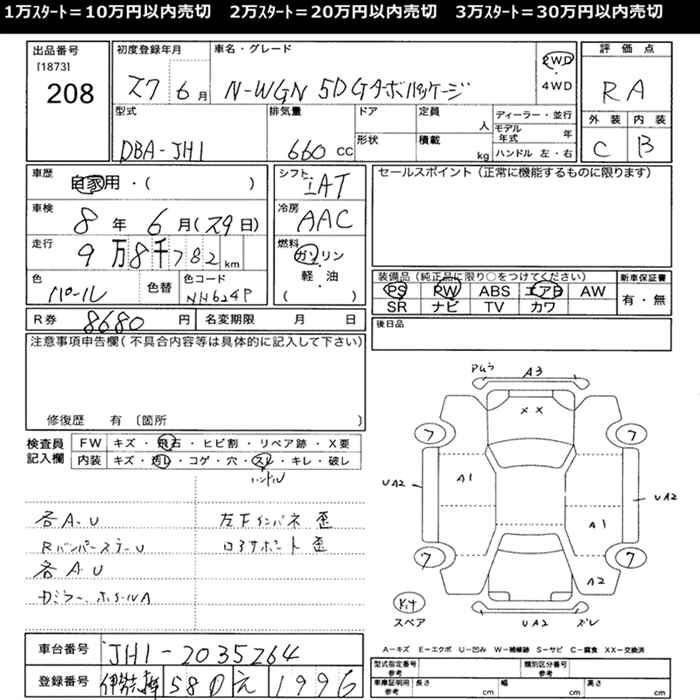 1万ｽﾀｰﾄ＝10万円以内売切　2万ｽﾀｰﾄ＝20万円以内売切　3万ｽﾀｰﾄ＝30万円以内売切
出品番号
[1873]
208
初度登録年月
27 6月
車名・グレード
N-WGN 5D Gターボパッケージ
2WD
・
4WD
評価点
RA
外装 内装
C B
型式
DBA-JH1
排気量
660 CC
ドア
形状
定員
人
積載
kg
ディーラー・並行
モデル年式 年
ハンドル 左・右
車歴
自家用・( )
車検
8年 6月(29日)
走行
9万8千782km
色
パール
色替
色コード
NH624P
シフト
IAT
冷房
AAC
燃料
ガソリン
・
軽・油
( )
セールスポイント（正常に機能するものに限ります）
装備品（純正品に限り○をつけてください）
PS PW ABS エアB AW
SR ナビ TV カワ
新車保証書
有・無
R券 8680円
名変期限 月 日
後日品
注意事項申告欄（不具合内容等は具体的に記入して下さい）
修復歴 有〔箇所 〕
検査員
記入欄
FW キズ・飛石・ヒビ割・リペア跡・X要
内装 キズ・汚れ・コゲ・穴・スレ・キレ・破レ
ハンドル
各A.U
Rバンパーステー U
各A U
ドミラー、ホイールA
左下インパネ 歪
ロアサポート 歪
A3
X X
フ フ
A1
UA2 UA2
A1
フ フ
A2
Kit
スペア
UA2 ズレ
A－キズ E－エクボ U－凹み W－補修跡 S－サビ C－腐食 XX－交換済
車台番号
JH1-2035264
登録番号
伊勢志摩 580 え 1996
型式指定番号
参考
類別区分番号
参考
車庫証明用
参考
長さ cm 幅 cm 高さ cm